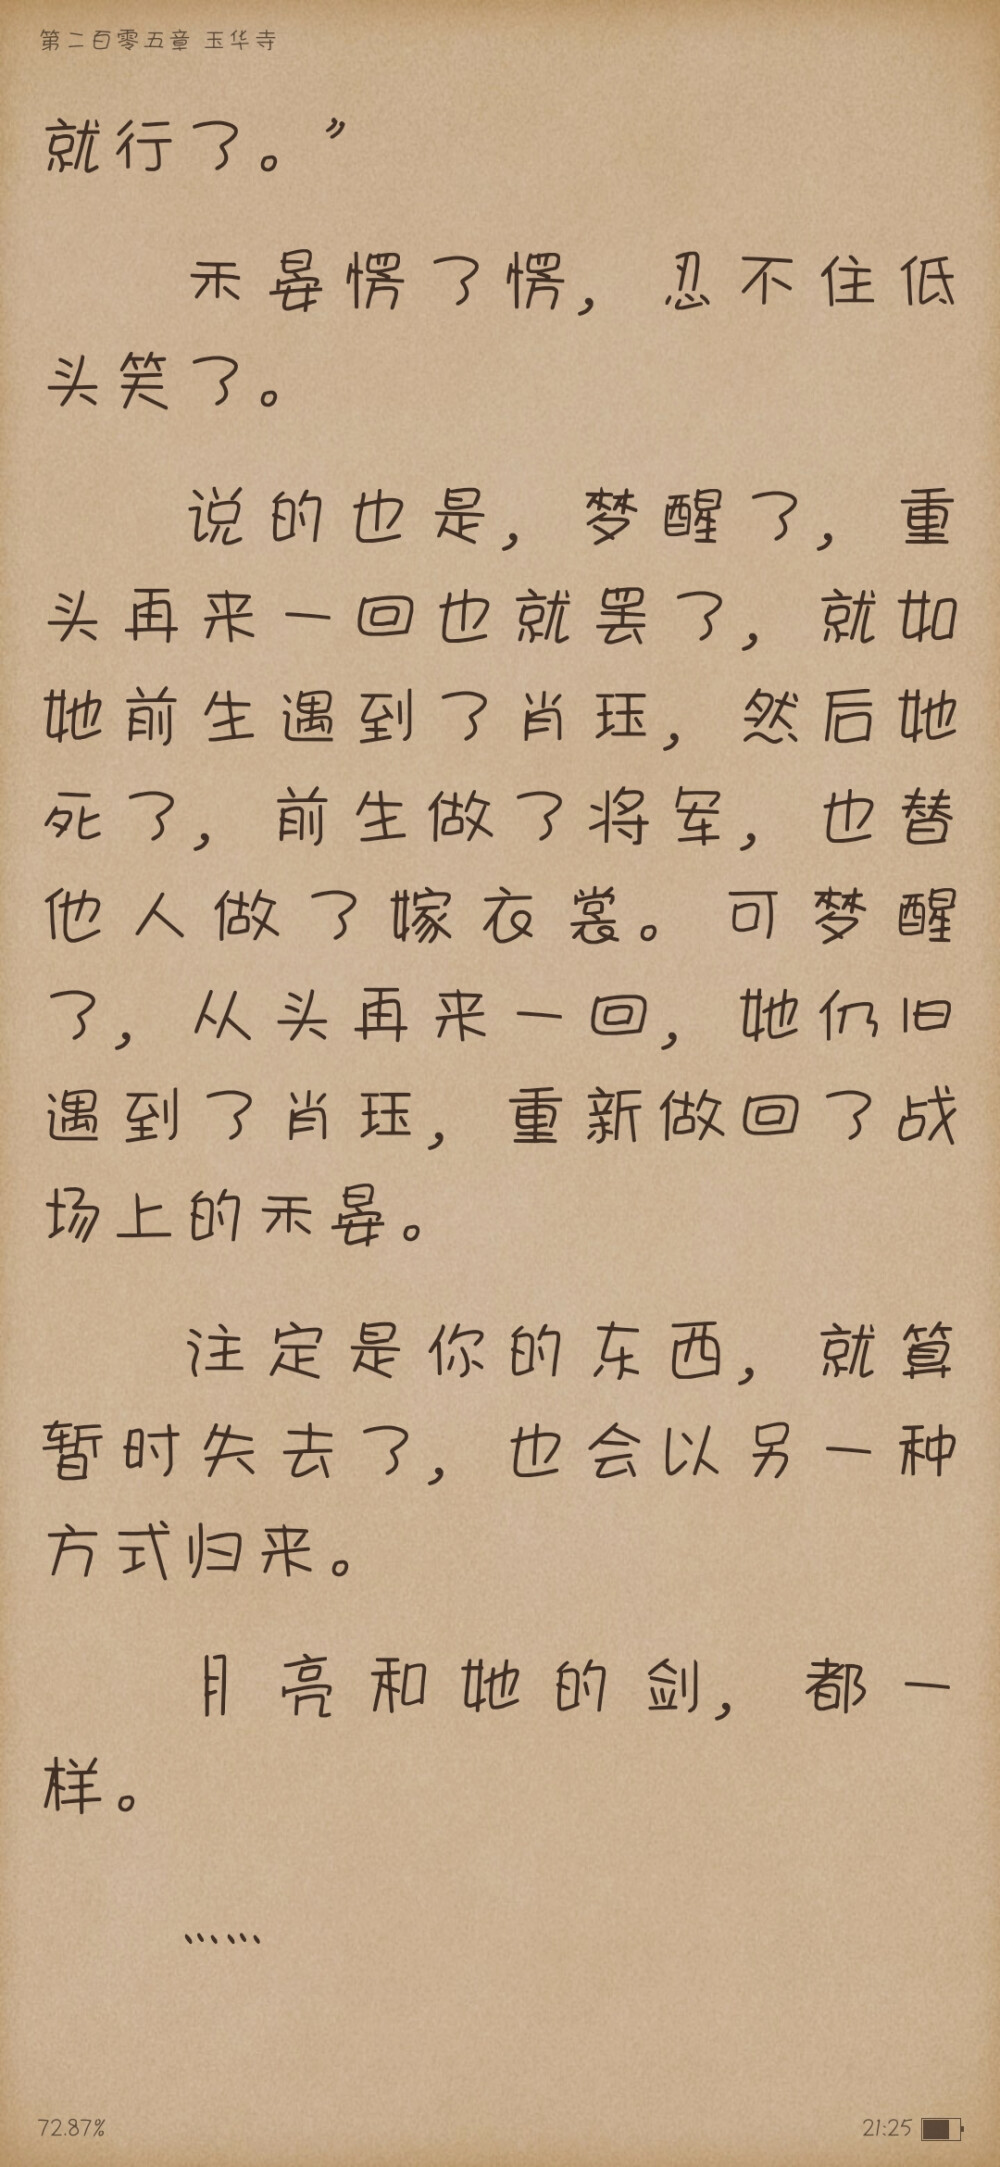 第二百零五章 玉华寺
就行了。”
禾晏愣了愣，忍不住低
头笑了。
说的也是，梦醒了，重
头再来一回也就罢了，就如
她前生遇到了肖珏，然后她
死了，前生做了将军，也替
他人做了嫁衣裳。可梦醒
了，从头再来一回，她仍旧
遇到了肖珏，重新做回了战
场上的禾晏。
注定是你的东西，就算
暂时失去了，也会以另一种
方式归来。
月亮和她的剑，都一
样。
……
72.87%
21:25